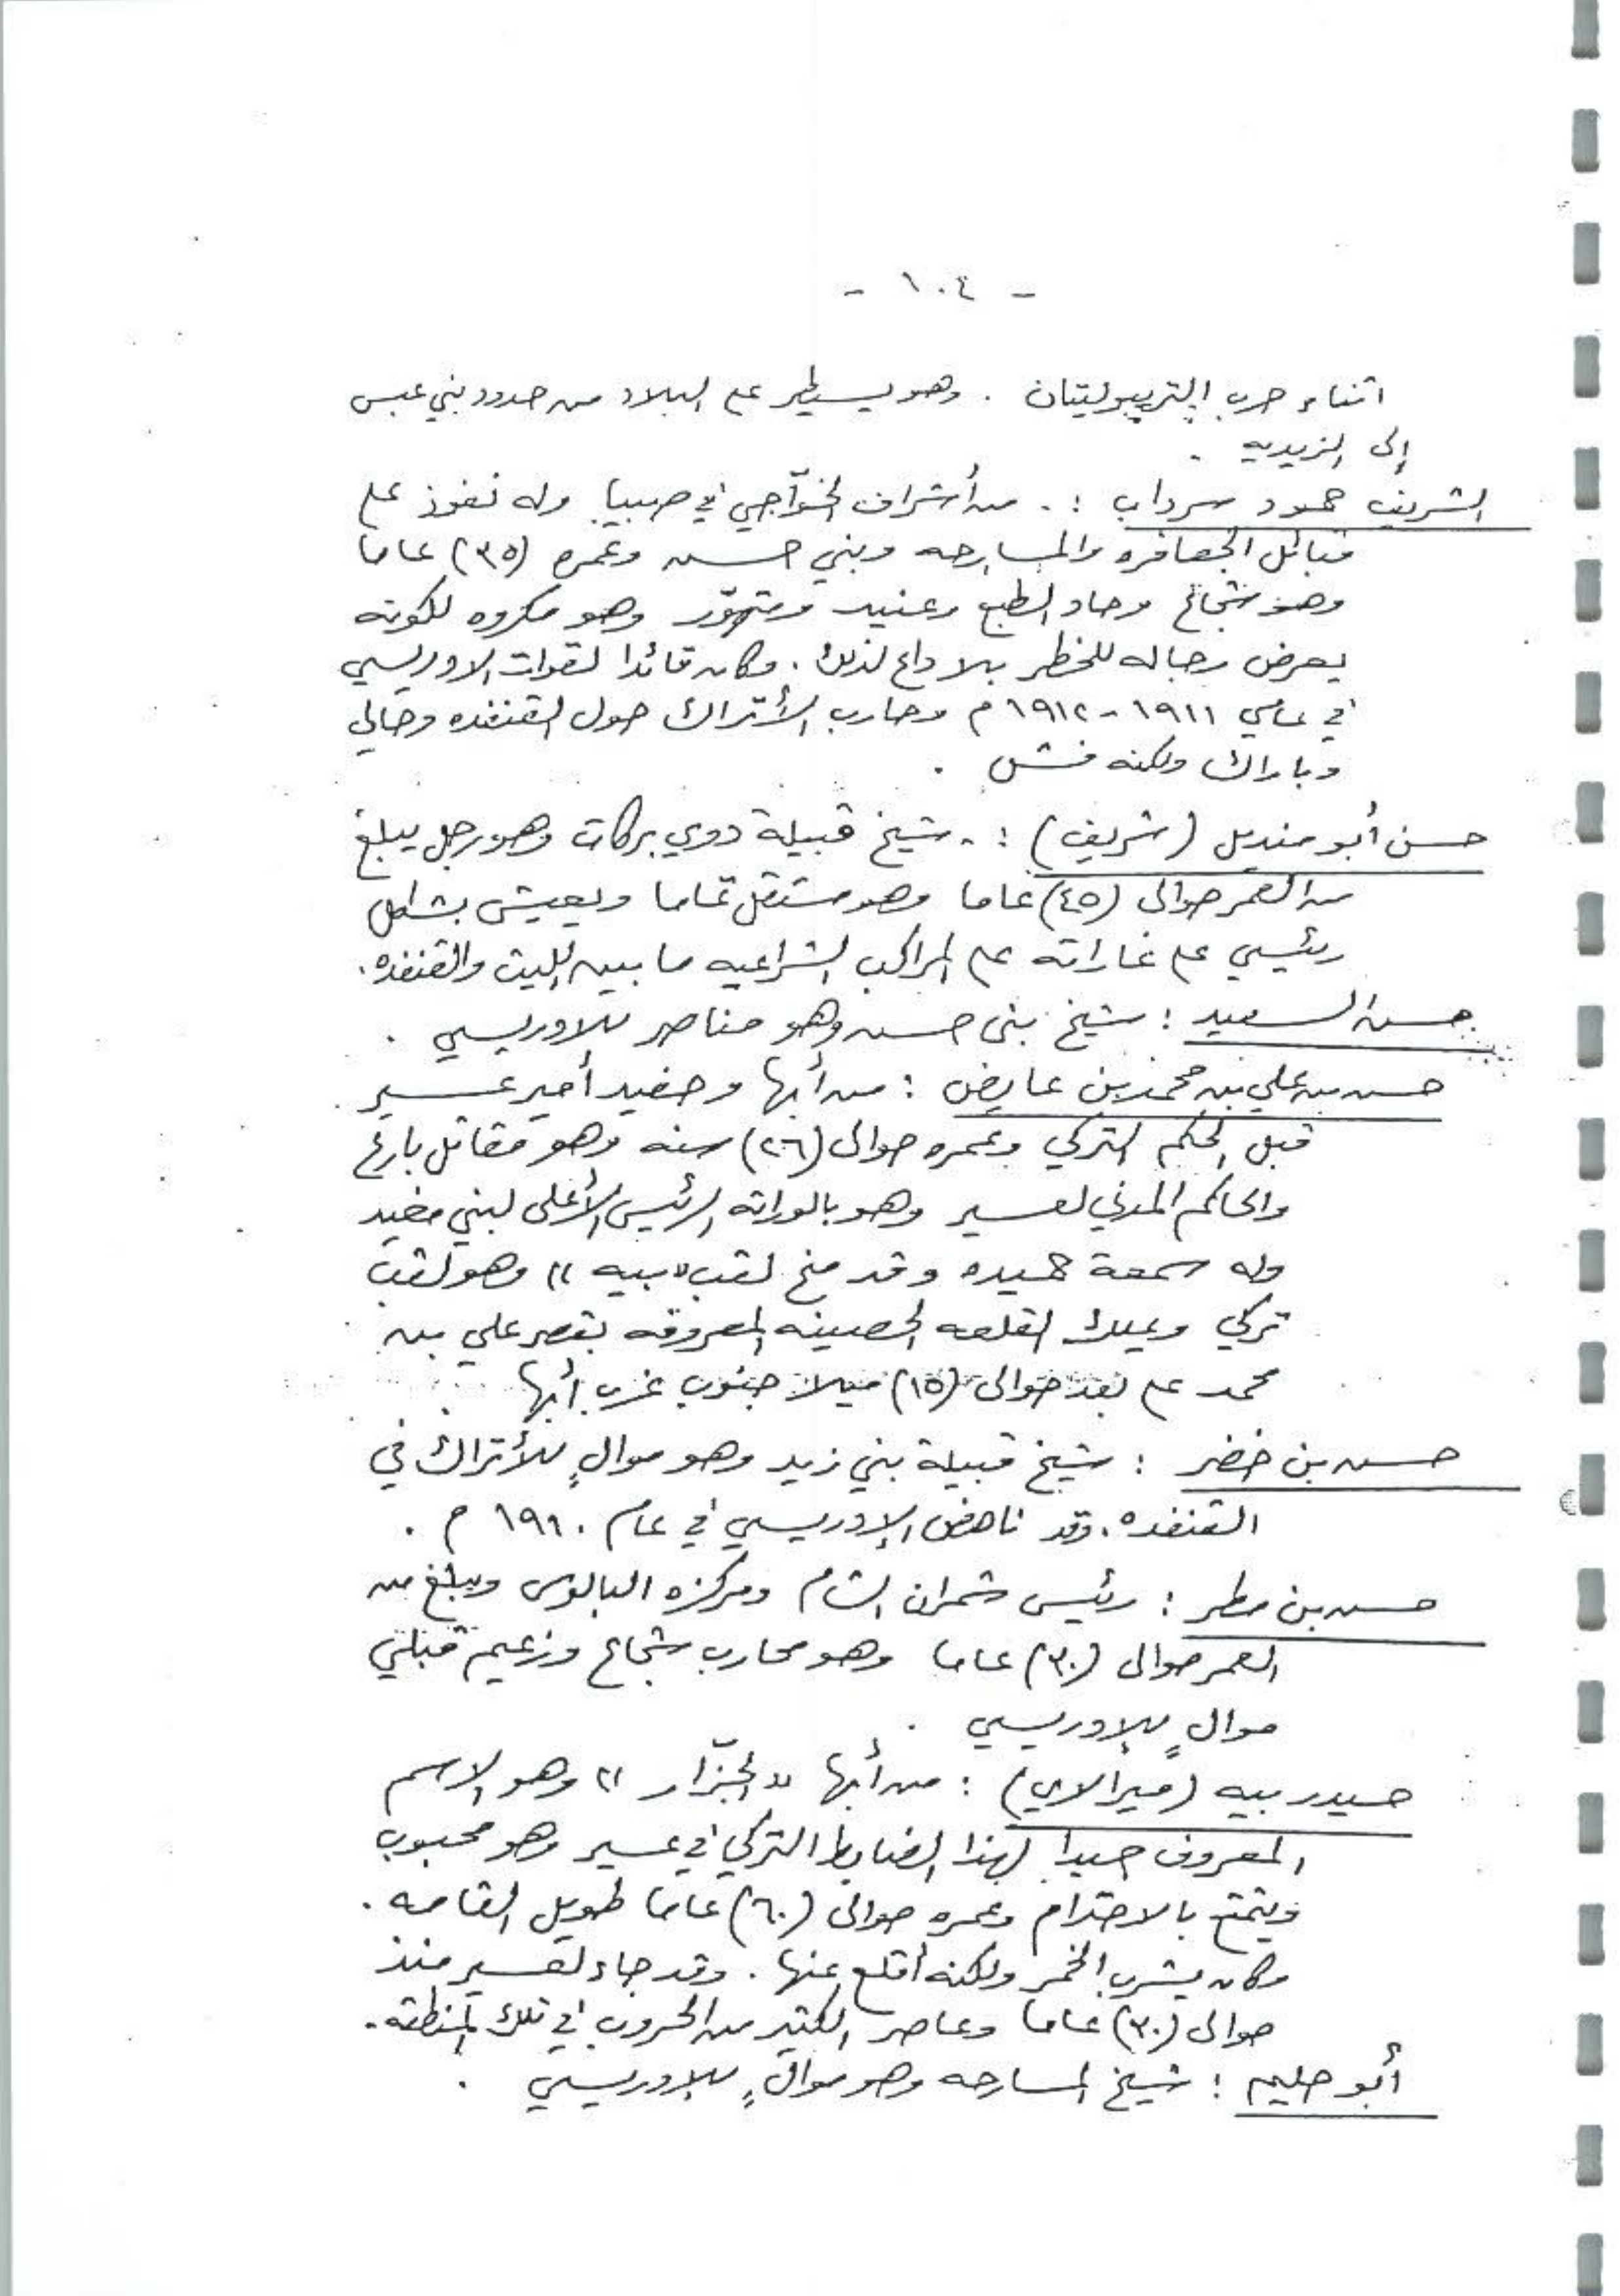 - ١٠٤ -
اثناء حرب التريبوليتان . وهو يسيطر على البلاد من حدود بني عبس
إلى الزيديه .
الشريف حمود سرداب : . من أشراف الخوّاجي في صبيا وله نفوذ على
قبائل الجعافره والمسارحه وبني حسن وعمره (٣٥) عاما
وهو شجاع وحاد الطبع وعنيد ومتهوّر وهو مكروه لكونه
يعرض رجاله للخطر بلا داع لذلك . وكان قائدا لقوات الادريسي
في عامي ١٩١١ - ١٩١٢ م وحارب الأتراك حول القنفذه وحالي
وباراك ولكنه فشل .
حسن أبو منديل (شريف) : . شيخ قبيلة ذوي بركات وهو رجل يبلغ
من العمر حوالى (٤٥) عاما وهو مستقل تماما ويعيش بشكل
رئيسي على غاراته على المراكب الشراعيه ما بين الليث والقنفذه .
حسن السعيد : شيخ بنى حسن وهو مناصر للادريسي .
حسن بن علي بن محمد بن عايض : من أبها وحفيد أمير عسير
قبل الحكم التركي وعمره حوالى (٢٦) سنه وهو مقاتل بارع
والحاكم المدني لعسير وهو بالوراثه الرئيس الأعلى لبني مغيد
وله سمعة حميده وقد منح لقب "بيه" وهو لقب
تركي ويملك القلعه الحصينه المعروفه بقصر علي بن
محمد على بعد حوالى (١٥) ميلا جنوب غرب أبها
حسن بن خضر : شيخ قبيلة بني زيد وهو موالٍ للأتراك في
القنفذه . وقد ناهض الإدريسي في عام ١٩١٠ م .
حسن بن مطر : رئيس شمران الشام ومركزه البالوس ويبلغ من
العمر حوالى (٣٠) عاما وهو محارب شجاع وزعيم قبلي
موالٍ للإدريسي .
حيدر بيه (ميرالاي) : من أبها "الجزّار" وهو الاسم
المعروف جيدا لهذا الضابط التركي في عسير وهو محبوب
ويتمتع بالاحترام وعمره حوالى (٦٠) عاما طويل القامه .
وكان يشرب الخمر ولكنه أقلع عنها . وقد جاء لعسير منذ
حوالى (٣٠) عاما وعاصر الكثير من الحروب في تلك المنطقه .
أبو حليم : شيخ المسارحه وهو موالٍ للإدريسي .